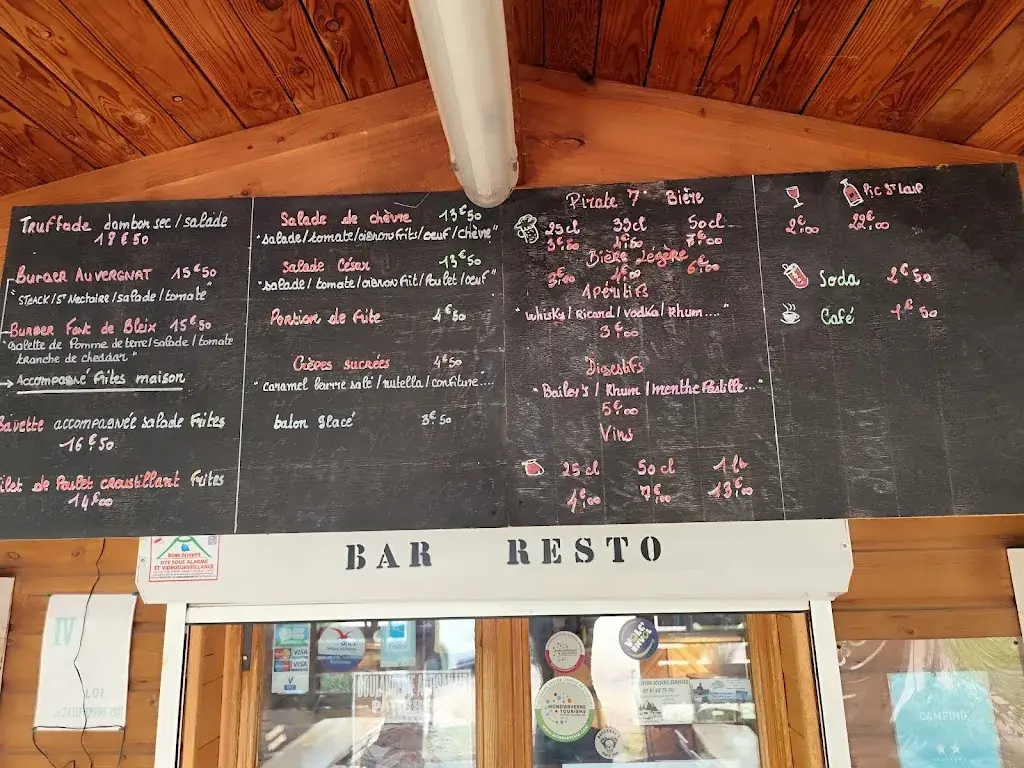 Truffade Jambon sec / salade
18€50
Burger Auvergnat 15€50
"Steack / St Nectaire / salade / tomate"
Burger Font de Bleix 15€50
"Galette de Pomme de terre / salade / tomate
tranche de cheddar"
→ Accompagné Frites maison
Bavette accompagnée salade Frites
16€50
ilet de Poulet croustillant Frites
14€00
Salade de chèvre 13€50
"salade / tomate / oignon frits / oeuf / chèvre"
Salade César 13€50
"salade / tomate / oignon frit / Poulet / oeuf"
Portion de frite 4€50
Crèpes sucrées 4€50
"caramel beurre salé / nutella / confiture....
baton glacé 3€50
Pirate 7° Bière
25cl 33cl 50cl
3€50 4€50 7€00
Bière Légère
3€00 4€00 6€00
Apéritifs
"whisky / Ricard / vodka / Rhum ...."
3€00
Digestifs
"Bailey's / Rhum / menthe Pastille..."
5€00
Vins
25 cl 50 cl
7€00 13€00
Pic St Loup
2€00 22€00
Soda 2€50
Café 1€50
BAR RESTO
SITE SOUS ALARME
ET VIDEOSURVEILLANCE
VISA
VISA
MOND'ARVERNE
TOURISME
CAMPING